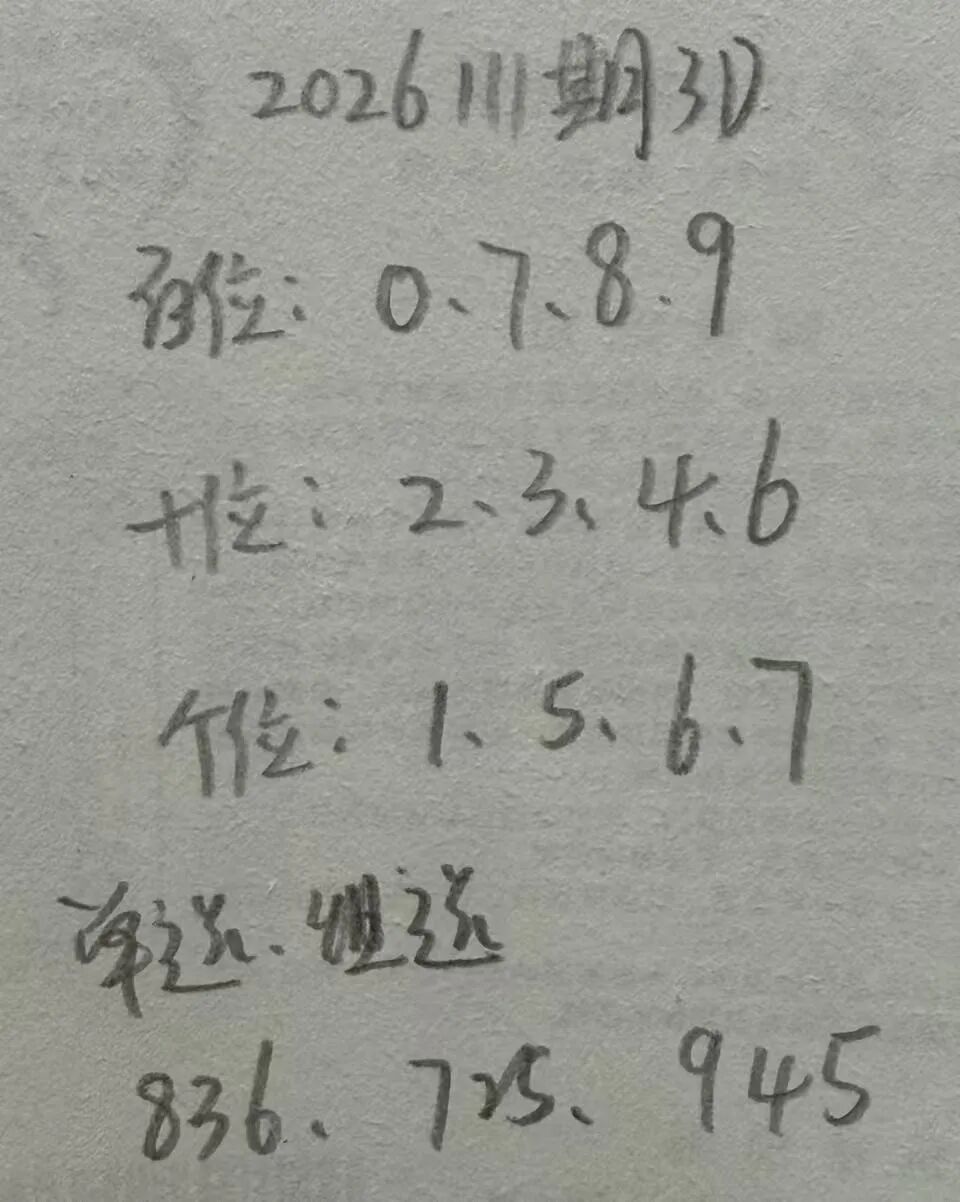 2026111期3D
百位：0、7、8、9
十位：2、3、4、6
个位：1、5、6、7
单选、组选
836、725、945